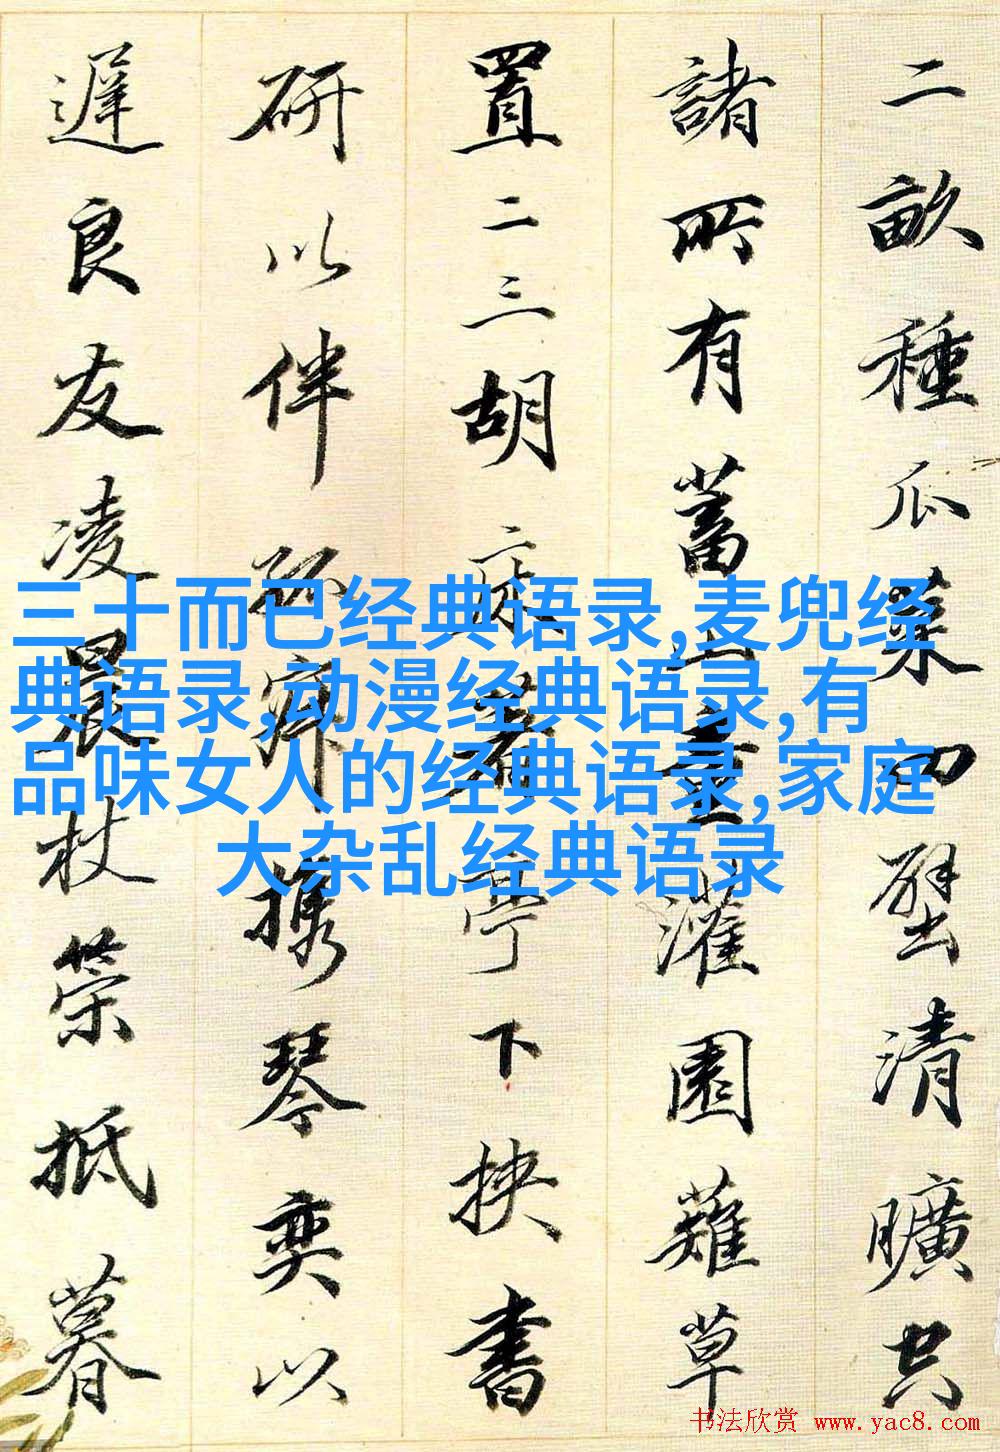 二畝種瓜菜四壁清曠空
諸所有蓄山童灌園薙草
置二三胡床著亭下挾書
研以伴孤寂携琴奕以
遲良友凌晨杖策抵暮
三十而已经典语录,麦兜经
典语录,动漫经典语录,有
品味女人的经典语录,家庭
大杂乱经典语录
书法欣赏 www.yac8.com